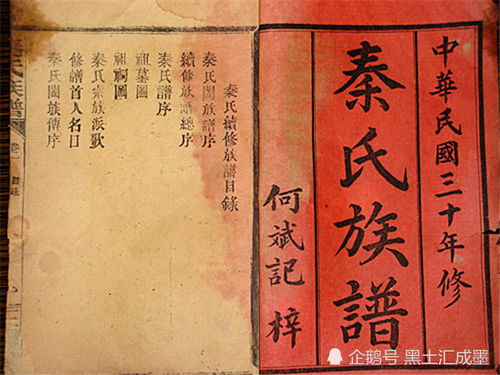 中華民國三十年修
秦氏族譜
何斌記 梓
秦氏續修族譜目錄
秦氏闔族譜序
續修族譜總序
秦氏譜序
祖墓圖
祖祠圖
秦氏宗族派歌
修譜首人名目
秦氏闔族傳序
氏族譜
卷一
企鹅号 黑土汇成墨